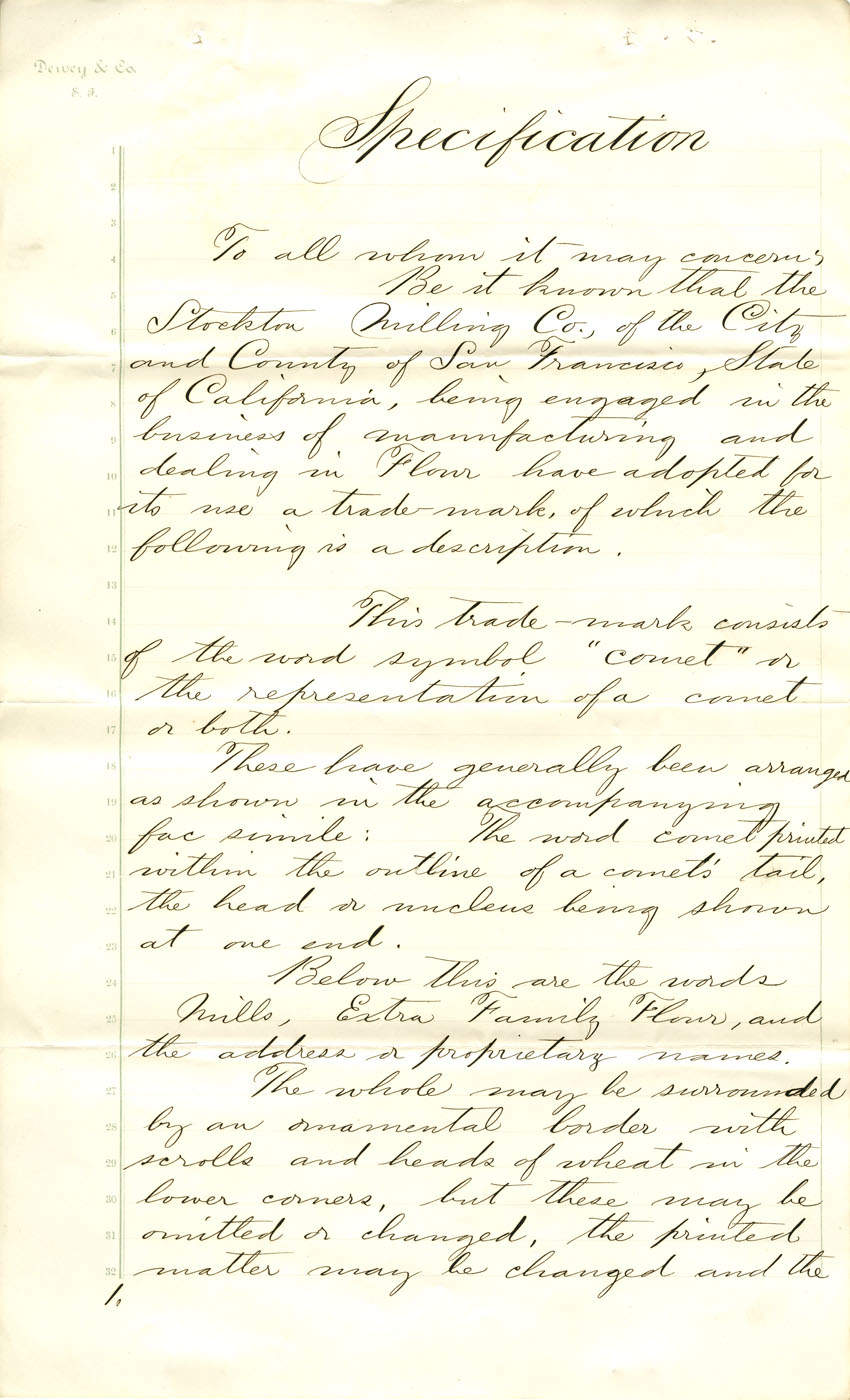 Dewey & Co.
S. F.
Specification
1
2
3
4 To all whom it may concern;
5 Be it known that the
6 Stockton Milling Co., of the City
7 and County of San Francisco, State
8 of California, being engaged in the
9 business of manufacturing and
10 dealing in Flour have adopted for
11 its use a trade-mark, of which the
12 following is a description.
13
14 This trade-mark consists
15 of the word symbol "comet" or
16 the representation of a comet
17 or both.
18 These have generally been arranged
19 as shown in the accompanying
20 fac simile: The word comet printed
21 within the outline of a comet's tail,
22 the head or nucleus being shown
23 at one end.
24 Below this are the words
25 Mills, Extra Family Flour, and
26 the address or proprietary names.
27 The whole may be surrounded
28 by an ornamental border with
29 scrolls and heads of wheat in the
30 lower corners, but these may be
31 omitted or changed, the printed
32 matter may be changed and the
1.